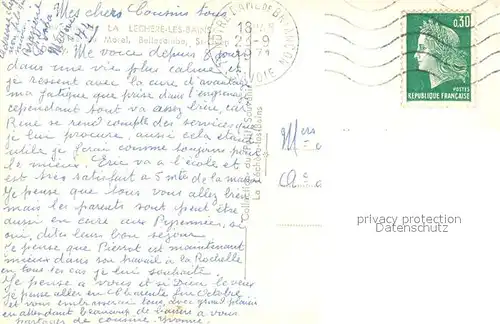 Mes chers Cousins tous
LA LECHERE-LES-BAINS
Me voici depuis 8 jours
dans une vie plus calme et
je ressent avec la cure d'avantage
ma fatigue que prise dans l'engrenage
cependant tout va assez bien, car
René se rend compte des services que
je lui procure, aussi cela étant
utile je ferai comme toujours pour
le mieux. Eric va à l'école et
est très satisfait à 5 mts de la maison
Je pense que tous vous allez bien
mais les parents sont peut être
aussi en cure aux Pyrennées, si
oui, dites leurs bon séjour
Je pense que Pierrot est maintenant
mieux dans son travail à la Rochelle
en tous les cas je lui souhaite.
Je pense à vous et si Dieu le veux
je pense aller en Charente fin Octobre
et vous embrasserai tous, avec grand plaisir
en attendant beaucoup de baisers à vous
partager de cousine Yvonne
18 H
2-9
1971
SAVOIE
0,30
POSTES
REPUBLIQUE FRANÇAISE
Collection du
La Léchère-les-Bains
privacy protection
Datenschutz